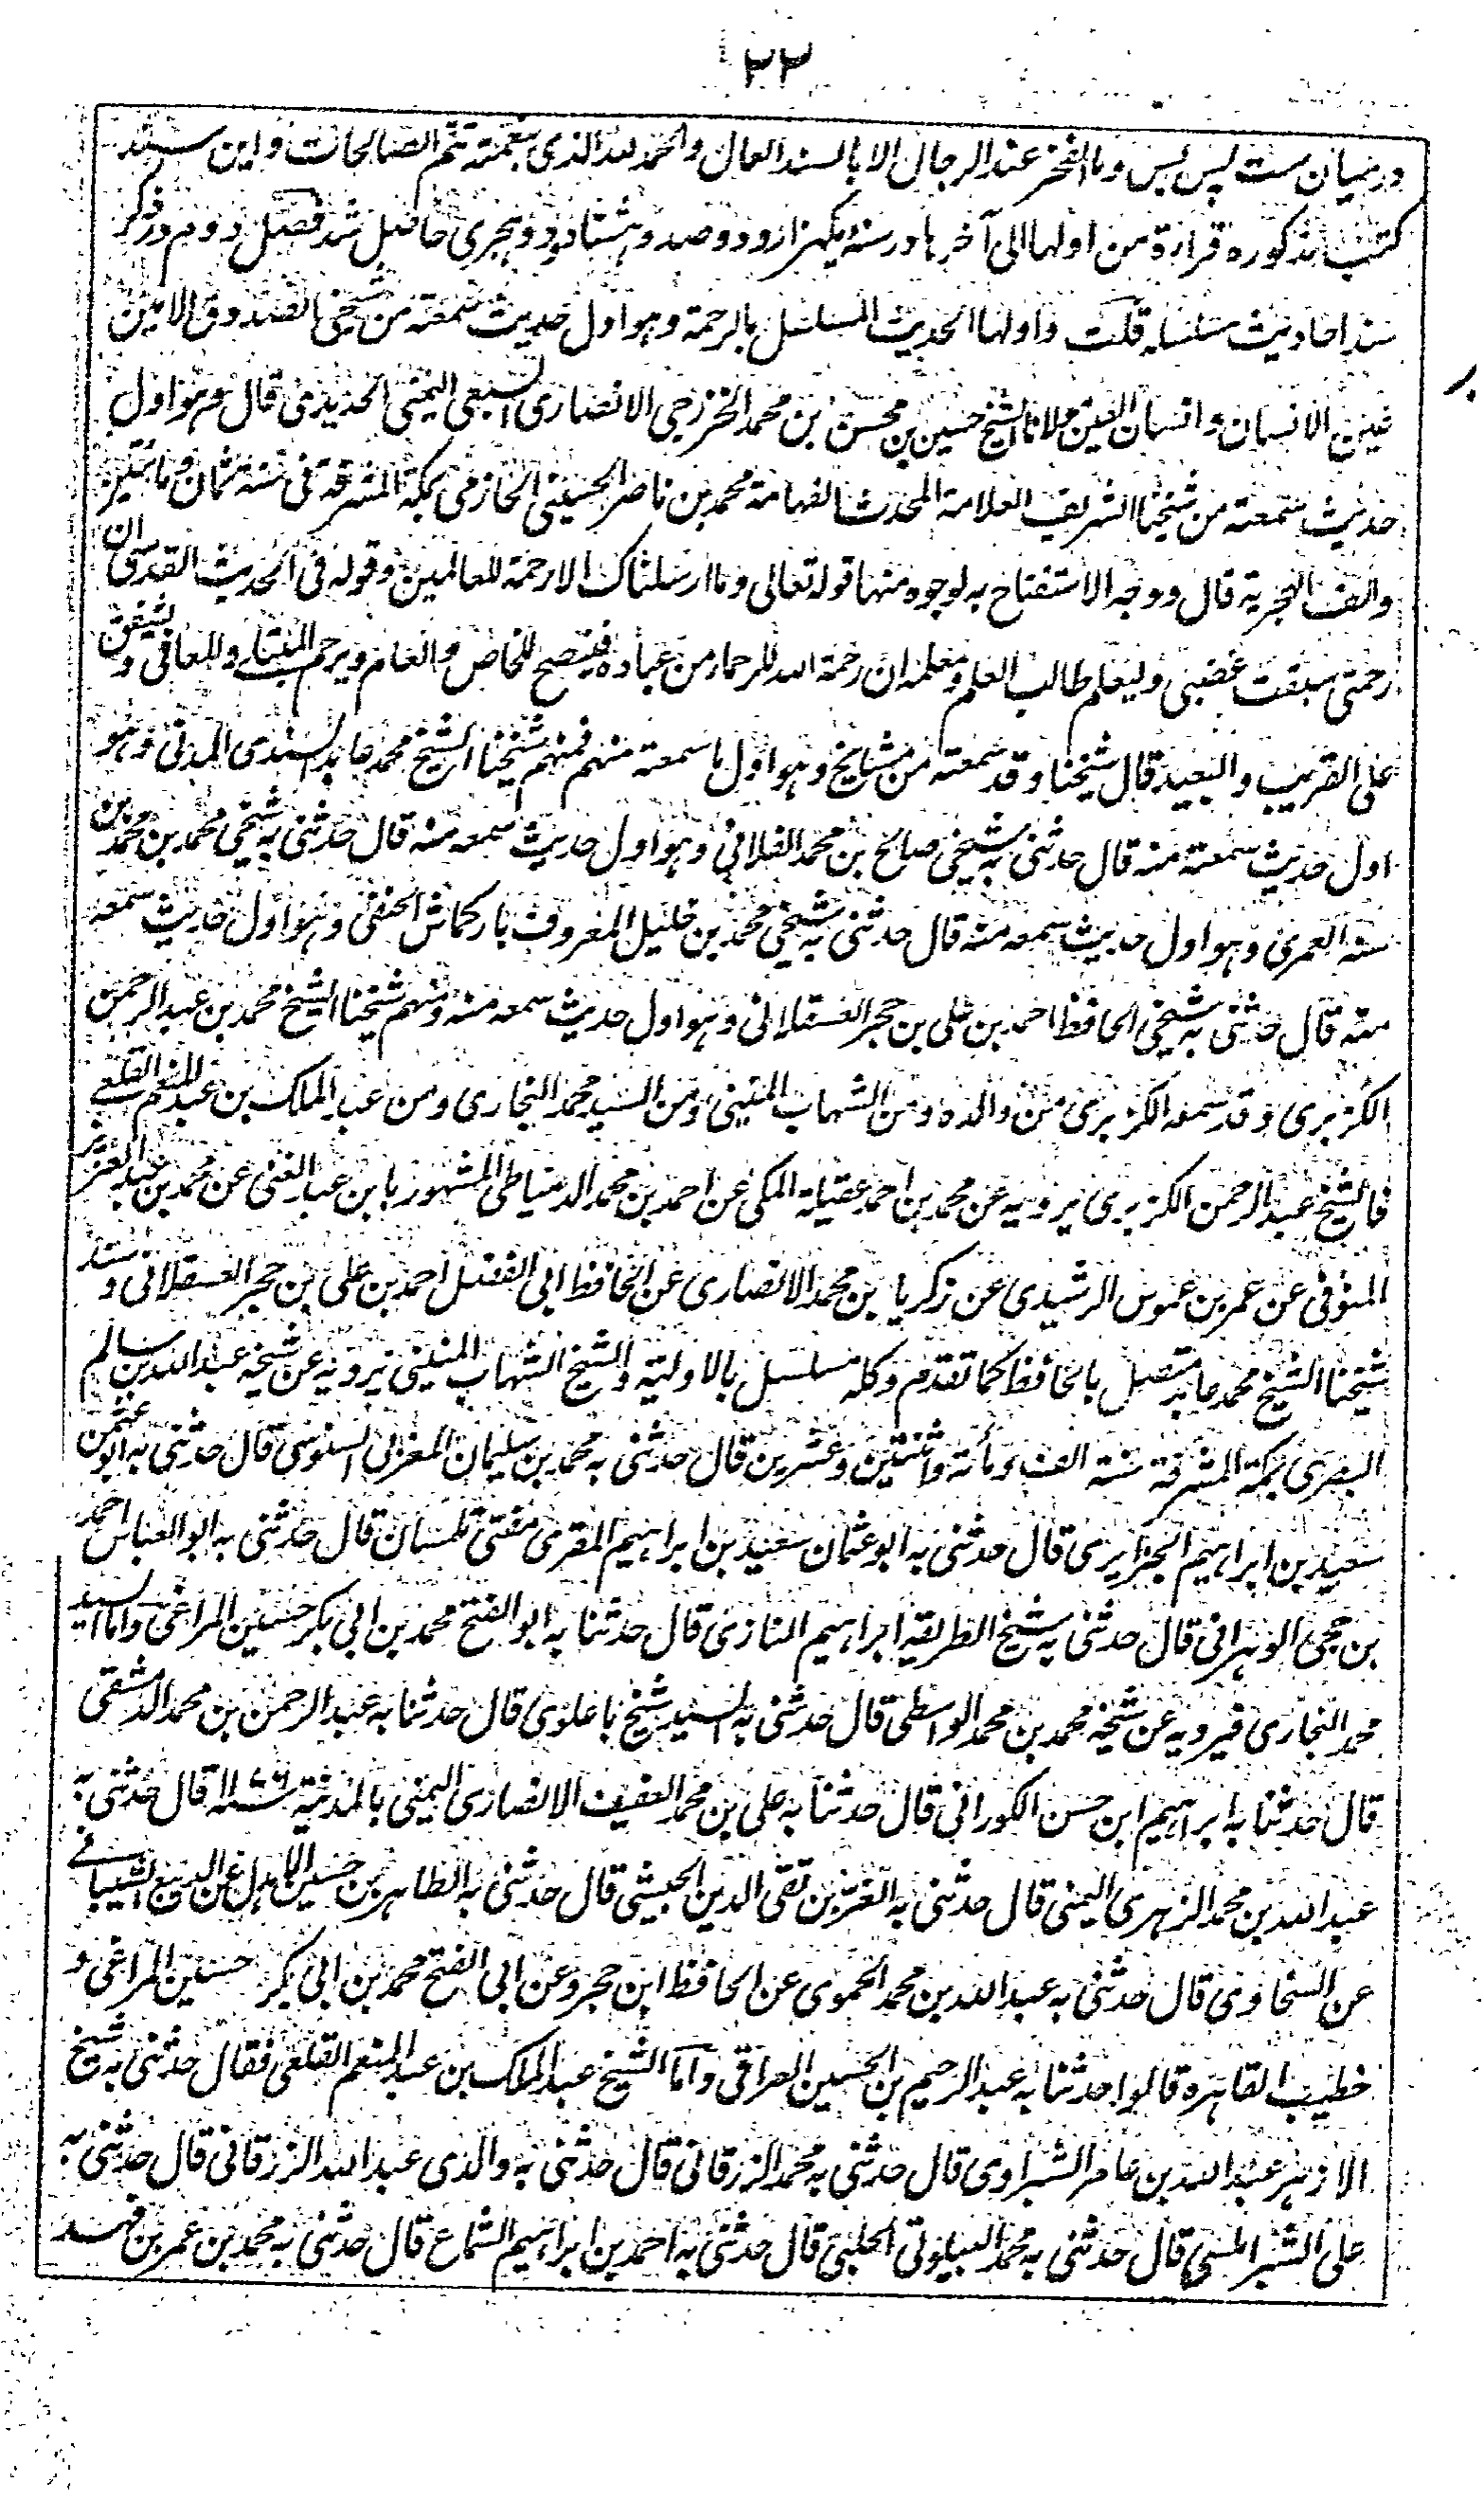 ۲۲
درمیان ست لیس بس وما الفخر عند الرجال الا بالسند العال والحمد لله الذی بنعمته تتم الصالحات واین سند
کتب مذکوره قراءة من اولها الی آخرها در سنه یکهزار و دو صد و هشتاد و دو هجری حاصل شد فصل دوم در ذکر
سند احادیث مسلسله قلت واولها الحدیث المسلسل بالرحمة وهو اول حدیث سمعته من شیخی الصدوق الامین
عین الانسان وانسان العین مولانا الشیخ حسین بن محسن بن محمد الخزرجی الانصاری السبعی الیمنی الحدیدی قال وهو اول
حدیث سمعته من شیخنا الشریف العلامة المحدث الفهامة محمد بن ناصر الحسینی الحازمی بمکة المشرفة فی سنة ثمان ومائتین
والف الهجریة قال ووجه الاستفتاح به لوجوه منها قوله تعالی وما ارسلناک الا رحمة للعالمین وقوله فی الحدیث القدسی ان
رحمتی سبقت غضبی ولیعلم طالب العلم ومعلمه ان رحمة الله للرحماء من عباده فینصح للخاص والعام ویرحم المبتلے والمعافی ویشفق
علی القریب والبعید قال شیخنا وقد سمعته من مشایخ وهو اول ما سمعته منهم فمنهم شیخنا الشیخ محمد عابد السندی المدنی وهو
اول حدیث سمعته منه قال حدثنی به شیخی صالح بن محمد الفلانی وهو اول حدیث سمعه منه قال حدثنی به شیخی محمد بن محمد بن
سنه العمری وهو اول حدیث سمعه منه قال حدثنی به شیخی محمد بن خلیل المعروف بارکماش الحنفی وهو اول حدیث سمعه
منه قال حدثنی به شیخی الحافظ احمد بن علی بن حجر العسقلانی وهو اول حدیث سمعه منه ومنهم شیخنا الشیخ محمد بن عبد الرحمن
الکزبری وقد سمعه الکزبری من والده ومن الشهاب المنینی ومن السید محمد البخاری ومن عبد الملک بن عبد المنعم القلعے
فالشیخ عبد الرحمن الکزبری یرویه عن محمد بن احمد عقیلة المکی عن احمد بن محمد الدمیاطی المشهور بابن عبد الغنی عن محمد بن عبد العزیز
المنوفی عن عمر بن عموس الرشیدی عن زکریا بن محمد الانصاری عن الحافظ ابی الفضل احمد بن علی بن حجر العسقلانی وسند
شیخنا الشیخ محمد عابد متصل بالحافظ کما تقدم وکله مسلسل بالاولیة والشیخ الشهاب المنینی یرویه عن شیخه عبد الله بن سالم
البصری بمکة المشرفة سنة الف ومأتة واثنتین وعشرین قال حدثنی به محمد بن سلیمان المغربی السنوسی قال حدثنی به ابو عثمن
سعید بن ابراهیم الجزایری قال حدثنی به ابو عثمان سعید بن ابراهیم المقری مفتی تلمسان قال حدثنی به ابو العباس احمد
بن حجی الوهرانی قال حدثنی به شیخ الطریقة ابراهیم التازی قال حدثنا به ابو الفتح محمد بن ابی بکر حسین المراغی واما السید
محمد البخاری فیرویه عن شیخه محمد بن محمد الواسطی قال حدثنی به السید شیخ باعلوی قال حدثنا به عبد الرحمن بن محمد الدمشقی
قال حدثنا به ابراهیم ابن حسن الکورانی قال حدثنا به علی بن محمد العفیف الانصاری الیمنی بالمدینة قال حدثنی به
عبد الله بن محمد الزهری الیمنی قال حدثنی به العز بن تقی الدین الحبیشی قال حدثنی به الطاهر بن حسین الاهدل عن الدیبع الشیبانے
عن السخاوی قال حدثنی به عبد الله بن محمد الحموی عن الحافظ ابن حجر وعن ابی الفتح محمد بن ابی بکر حسین المراغی و
خطیب القاهره قالوا حدثنا به عبد الرحیم بن الحسین العراقی واما الشیخ عبد الملک بن عبد المنعم القلعی فقال حدثنی به شیخ
الازهر عبد الله بن عامر الشبراوی قال حدثنی به محمد الزرقانی قال حدثنی به والدی عبد الله الزرقانی قال حدثنی به
علی الشبراملسی قال حدثنی به محمد البیلونی الحلبی قال حدثنی به احمد بن ابراهیم الشماع قال حدثنی به محمد بن عمر بن فهد